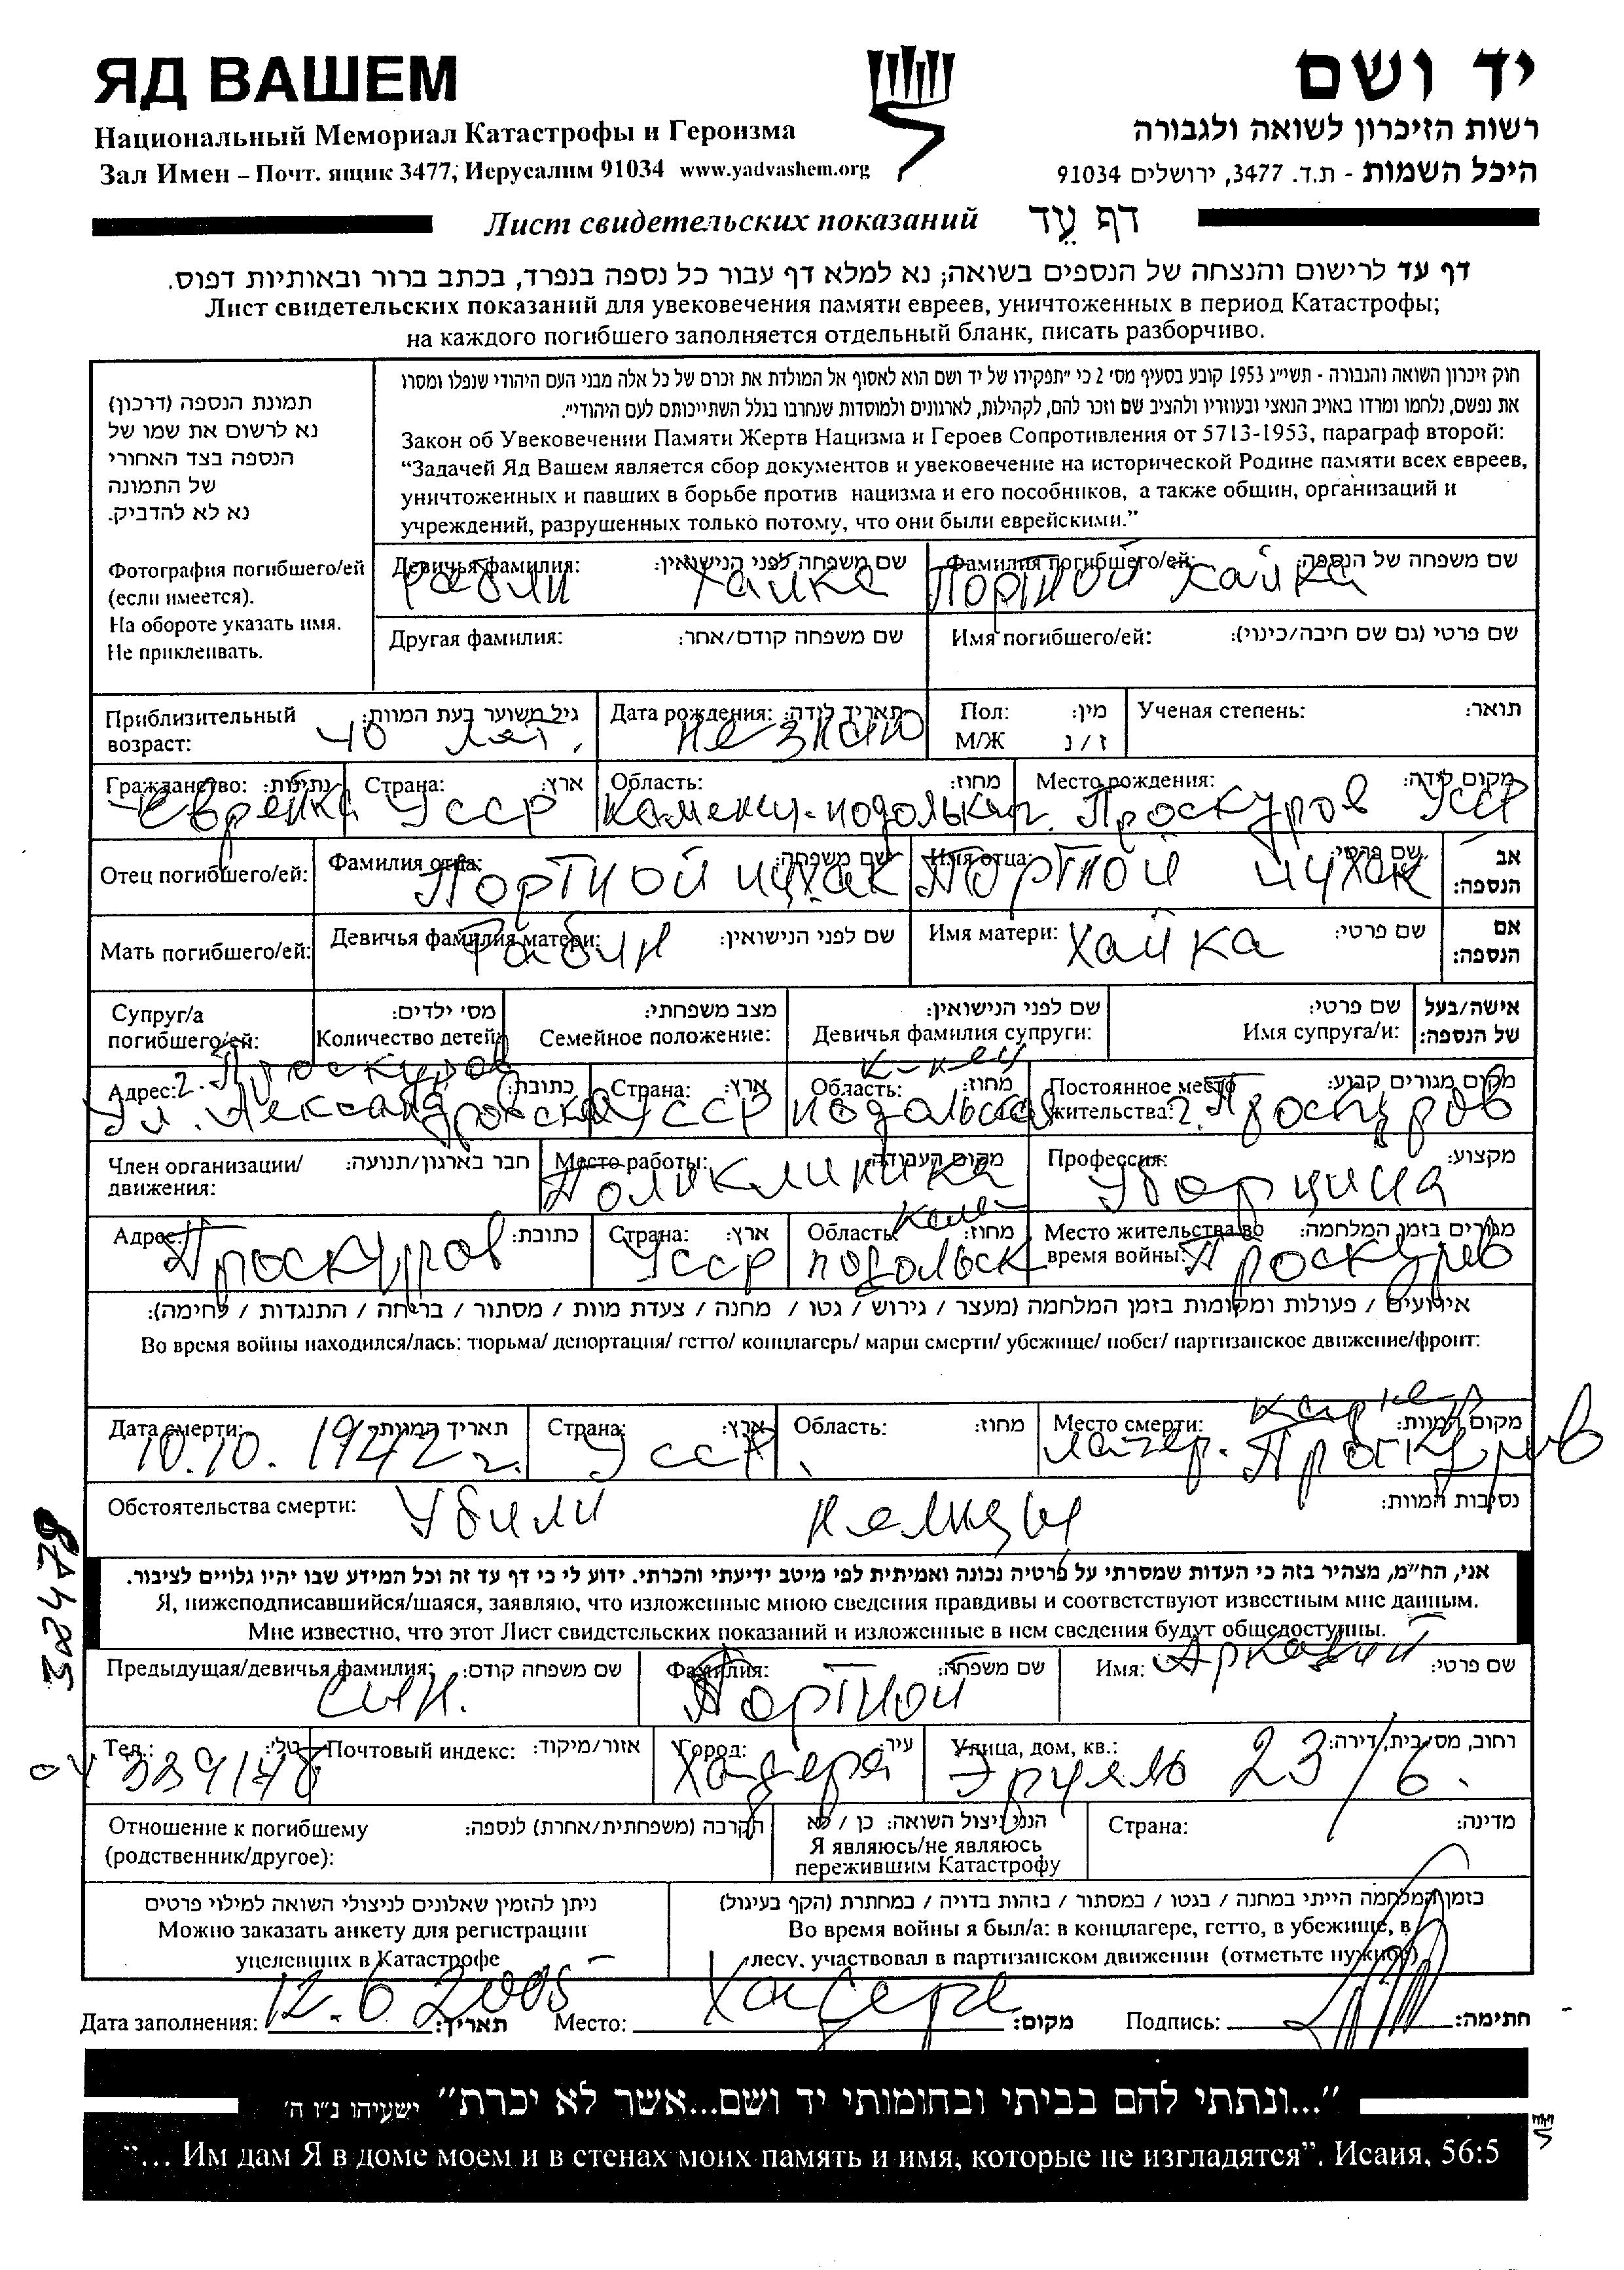 ЯД ВАШЕМ
יד ושם
Национальный Мемориал Катастрофы и Героизма
רשות הזיכרון לשואה ולגבורה
Зал Имен – Почт. ящик 3477, Иерусалим 91034 www.yadvashem.org
היכל השמות - ת.ד. 3477, ירושלים 91034
Лист свидетельских показаний דף עֵד
דף עד לרישום והנצחה של הנספים בשואה; נא למלא דף עבור כל נספה בנפרד, בכתב ברור ובאותיות דפוס.
Лист свидетельских показаний для увековечения памяти евреев, уничтоженных в период Катастрофы;
на каждого погибшего заполняется отдельный бланк, писать разборчиво.
תמונת הנספה (דרכון)
נא לרשום את שמו של
הנספה בצד האחורי
של התמונה
נא לא להדביק.
Фотография погибшего/ей
(если имеется).
На обороте указать имя.
Не приклеивать.
חוק זיכרון השואה והגבורה - תשי"ג 1953 קובע בסעיף מס' 2 כי "תפקידו של יד ושם הוא לאסוף אל המולדת את זכרם של כל אלה מבני העם היהודי שנפלו ומסרו
את נפשם, נלחמו ומרדו באויב הנאצי ובעוזריו ולהציב שם וזכר להם, לקהילות, לארגונים ולמוסדות שנחרבו בגלל השתייכותם לעם היהודי".
Закон об Увековечении Памяти Жертв Нацизма и Героев Сопротивления от 5713-1953, параграф второй:
“Задачей Яд Вашем является сбор документов и увековечение на исторической Родине памяти всех евреев,
уничтоженных и павших в борьбе против нацизма и его пособников, а также общин, организаций и
учреждений, разрушенных только потому, что они были еврейскими.”
Девичья фамилия: שם משפחה לפני הנישואין: Фамилия погибшего/ей: שם משפחה של הנספה:
Хайка Портной Хайка
Другая фамилия: שם משפחה קודם/אחר: Имя погибшего/ей: שם פרטי (גם שם חיבה/כינוי):
Приблизительный возраст: גיל משוער בעת המוות: Дата рождения: תאריך לידה: Пол: М/Ж מין: ז / נ Ученая степень: תואר:
40 лет. не знаю
Гражданство: נתינות: Страна: ארץ: Область: מחוז: Место рождения: מקום לידה:
еврейка УССР г. Проскуров УССР
Отец погибшего/ей: Фамилия отца: שם משפחה: Имя отца: שם פרטי: אב הנספה:
Портной Ицхак Портной Ицхак
Мать погибшего/ей: Девичья фамилия матери: שם לפני הנישואין: Имя матери: שם פרטי: אם הנספה:
Рабин Хайка
Супруг/а погибшего/ей: מס' ילדים: Количество детей: מצב משפחתי: Семейное положение: שם לפני הנישואין: Девичья фамилия супруги: שם פרטי: Имя супруга/и: אישה/בעל של הנספה:
Адрес: כתובת: Страна: ארץ: Область: מחוז: Постоянное место жительства: מקום מגורים קבוע:
г. Проскуров
УССР г. Проскуров
Член организации/движения: חבר בארגון/תנועה: Место работы: מקום העבודה: Профессия: מקצוע:
Поликлиника Уборщица
Адрес: כתובת: Страна: ארץ: Область: מחוז: Место жительства во время войны: מגורים בזמן המלחמה:
Проскуров УССР Каме- подольск Проскуров
אירועים / פעולות ומקומות בזמן המלחמה (מעצר / גירוש / גטו / מחנה / צעדת מוות / מסתור / בריחה / התנגדות / לחימה):
Во время войны находился/лась: тюрьма/ депортация/ гетто/ концлагерь/ марш смерти/ убежище/ побег/ партизанское движение/фронт:
Дата смерти: תאריך המוות: Страна: ארץ: Область: מחוז: Место смерти: מקום המוות:
10.10. 1942 г. УССР карьер лагер. Проскуров
Обстоятельства смерти: Убили немцы נסיבות המוות:
אני, הח"מ, מצהיר בזה כי העדות שמסרתי על פרטיה נכונה ואמיתית לפי מיטב ידיעתי והכרתי. ידוע לי כי דף עד זה וכל המידע שבו יהיו גלויים לציבור.
Я, нижеподписавшийся/шаяся, заявляю, что изложенные мною сведения правдивы и соответствуют известным мне данным.
Мне известно, что этот Лист свидетельских показаний и изложенные в нем сведения будут общедоступны.
Предыдущая/девичья фамилия: שם משפחה קודם: Фамилия: שם משפחה: Имя: שם פרטי:
сын. Портной Аркадий
Тел.: טל': Почтовый индекс: אזור/מיקוד: Город: עיר: Улица, дом, кв.: רחוב, מס' בית, דירה:
Хадера 23/6.
Отношение к погибшему (родственник/другое): הקרבה (משפחתית/אחרת) לנספה: הנני ניצול השואה: כן / לא Страна: מדינה:
Я являюсь/не являюсь
пережившим Катастрофу
ניתן להזמין שאלונים לניצולי השואה למילוי פרטים
Можно заказать анкету для регистрации
уцелевших в Катастрофе
בזמן המלחמה הייתי במחנה / בגטו / במסתור / בזהות בדויה / במחתרת (הקף בעיגול)
Во время войны я был/а: в концлагере, гетто, в убежище, в
лесу, участвовал в партизанском движении (отметьте нужное)
Дата заполнения: 12.6 2005 תאריך: Место: Хадера מקום: Подпись: חתימה:
"...ונתתי להם בביתי ובחומותי יד ושם...אשר לא יכרת" ישעיהו נ"ו ה'
“... Им дам Я в доме моем и в стенах моих память и имя, которые не изгладятся”. Исаия, 56:5